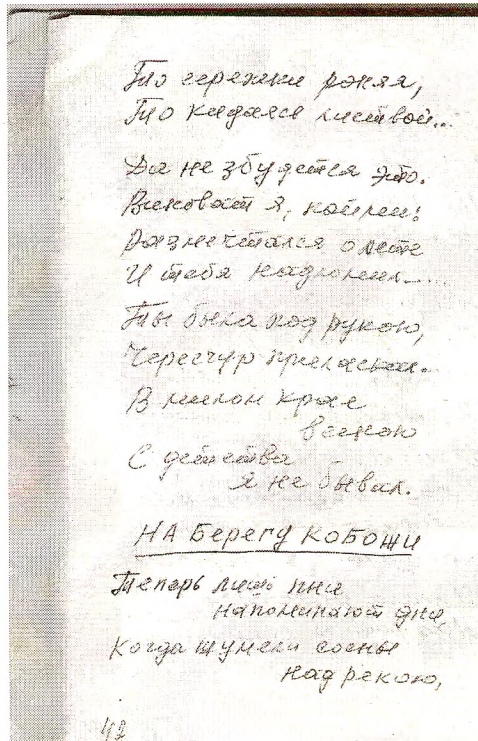 То сережки роняя,
То кидаяся листвой...
Да не збудется это.
Виноват я,
Размечтался о лете
И тебя надломил.....
Ты была под рукою,
Чересчур приласкал.
В милом крае
весною
С детства
я не бывал.
НА БЕРЕГУ КОБОЖИ
Теперь лишь пни
напоминают дни,
Когда шумели сосны
над рекою,
42